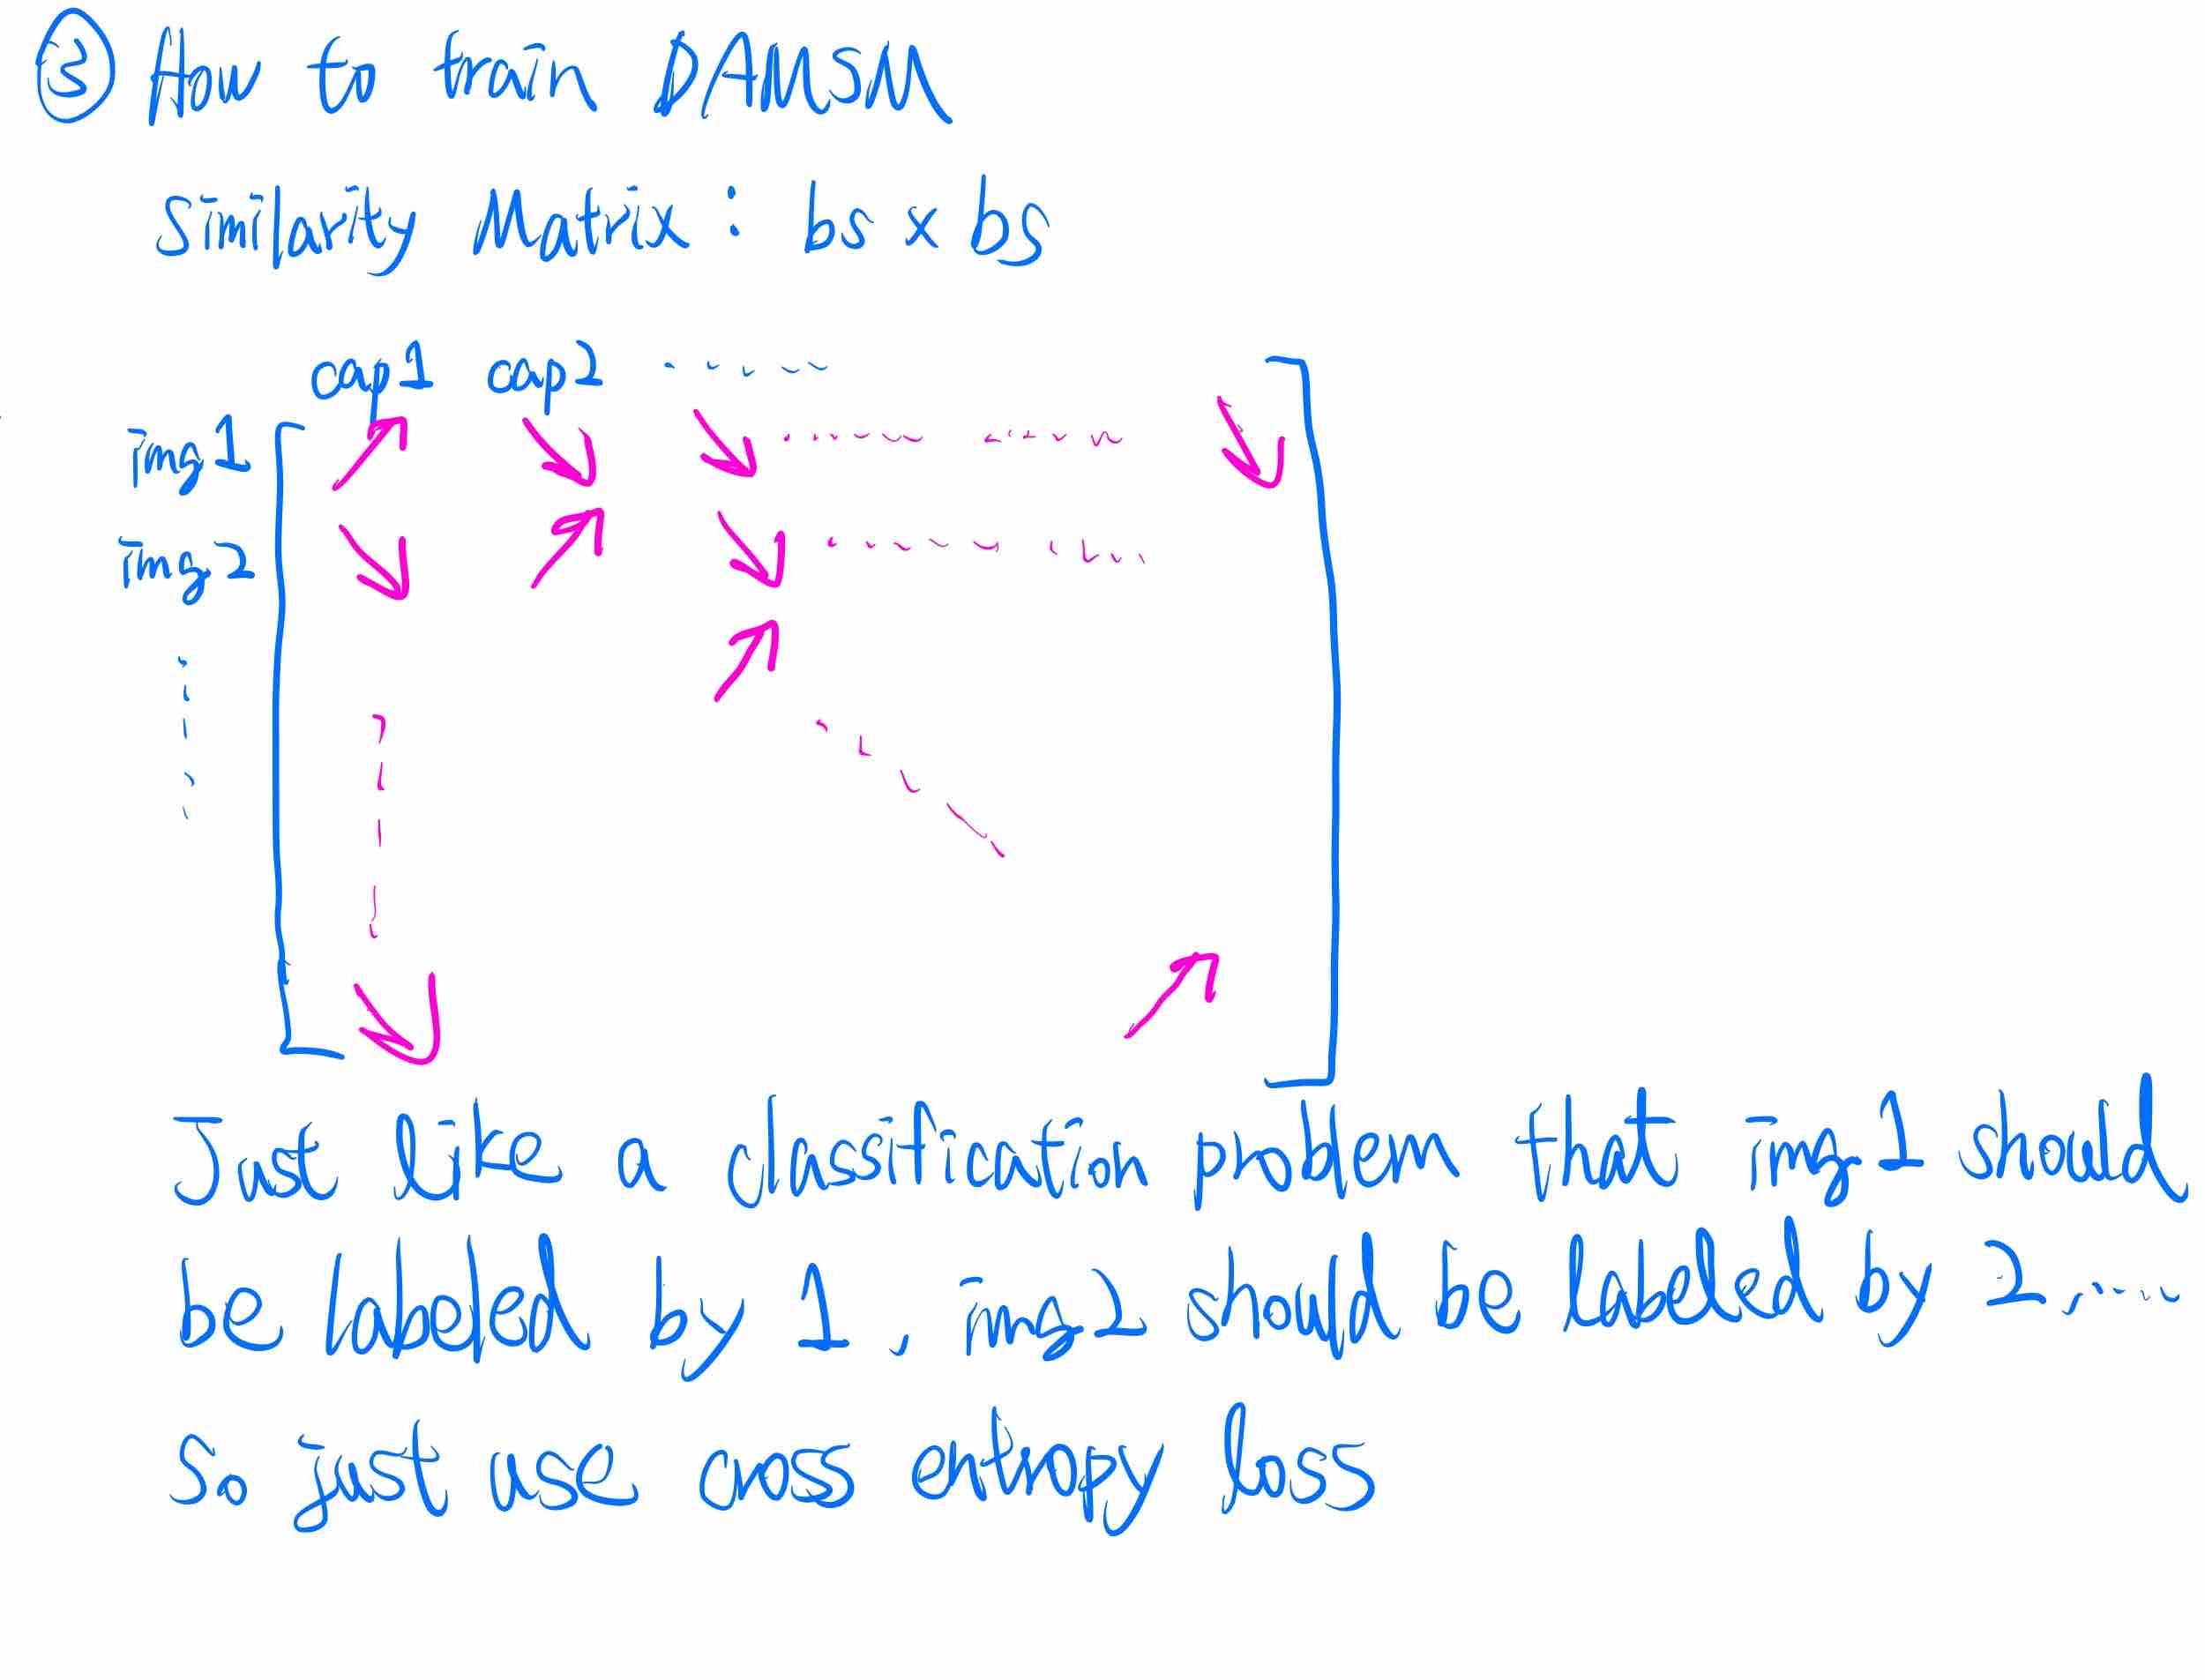 ③ How to train DAMSM
Similarity Matrix : bs x bs
cap1 cap2 ......
img1
img2
Just like a classification problem that img1 should
be labeled by 1, img2 should be labeled by 2 .....
So just use cross entropy loss